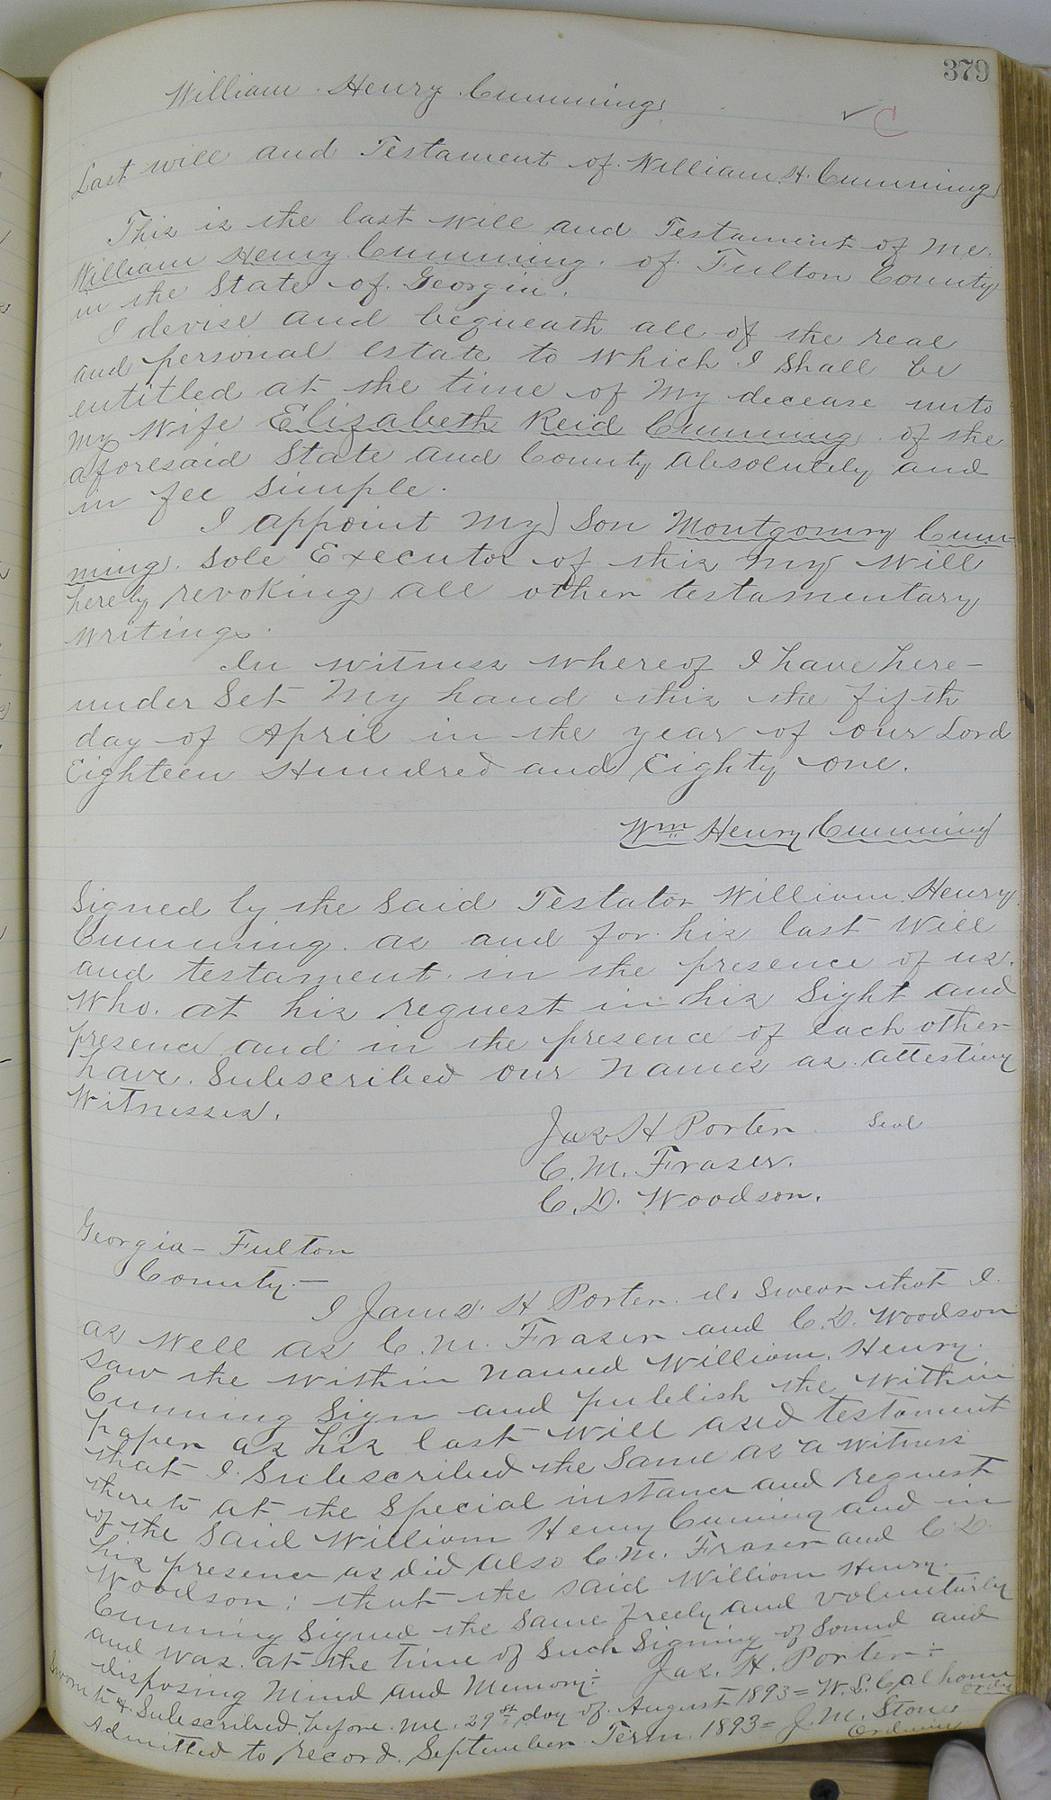 379
William Henry Cumming
✓ C
Last will and Testament of William H. Cumming
This is the last will and Testament of me
William Henry Cumming of Fulton County
in the State of Georgia.
I devise and bequeath all of the real
and personal estate to which I shall be
entitled at the time of my decease unto
my wife Elizabeth Reid Cumming of the
aforesaid State and County absolutely and
in fee simple.
I appoint my Son Montgomery Cum-
ming Sole Executor of this my will
hereby revoking all other testamentary
writings.
In witness whereof I have here-
under Set my hand this the fifth
day of April in the year of our Lord
Eighteen Hundred and Eighty one.
Wm Henry Cumming
Signed by the Said Testator William Henry
Cumming as and for his last Will
and testament in the presence of us.
Who at his request in his Sight and
presence and in the presence of each other
have Subscribed our names as attesting
Witnesses.
Jas H Porter Seal
C. M. Fraser.
C. D. Woodson.
Georgia - Fulton
County. -
I James H Porter do Swear that I
as well as C. M. Fraser and C. D. Woodson
Saw the within named William Henry
Cumming Sign and publish the within
paper as his last will and testament
that I Subscribed the Same as a witness
thereto at the special instance and request
of the Said William Henry Cumming and in
his presence as did also C. M. Fraser and C. D.
Woodson; that the said William Henry
Cumming Signed the Same freely and voluntarily
and was at the time of Such Signing of Sound and
disposing Mind and Memory. Jas. H. Porter
Sworn to & Subscribed before me 29st day of August 1893 = W. L. Calhoun Ordy
Admitted to record September Term 1893 = J. M. Stone
Ordinary